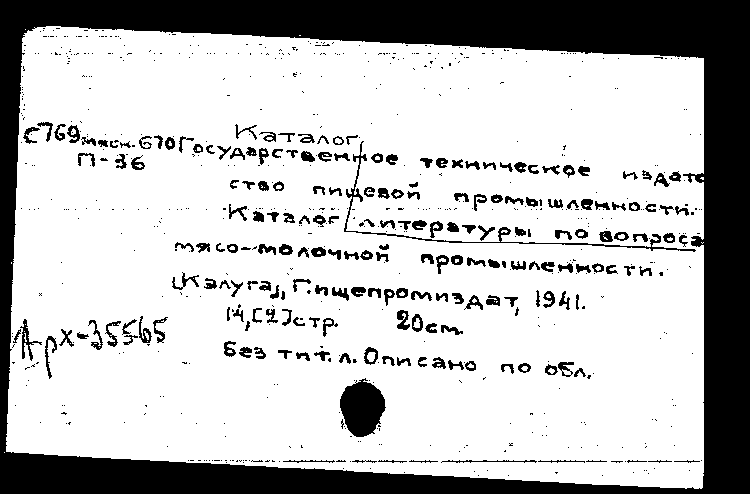 Каталог
С769 мясн. 670 Государственное техническое издате
П-36
ство пищевой промышленности.
Каталог литературы по вопроса
мясо-молочной промышленности.
[Калуга], Пищепромиздат, 1941.
14,[2]стр. 20см.
Без тит. л. Описано по обл.
Арх-35565